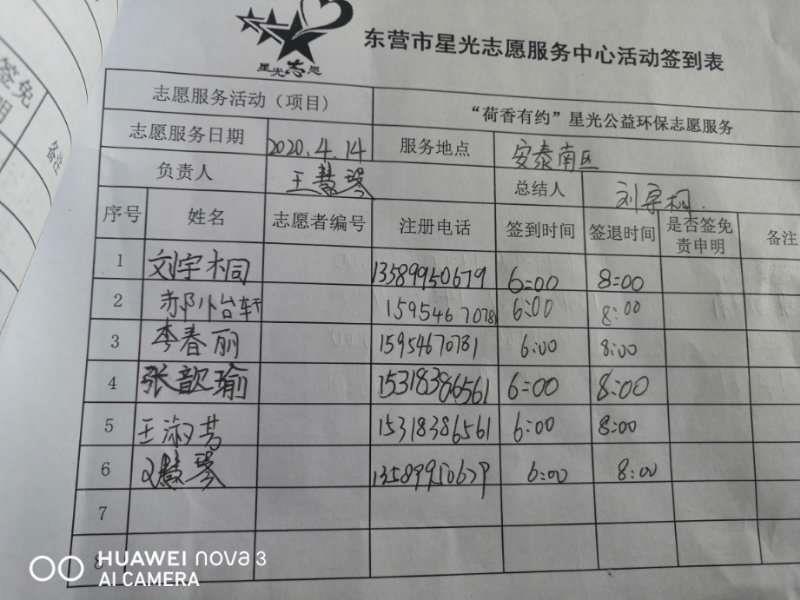 签免
明
备注
星光志愿
东营市星光志愿服务中心活动签到表
志愿服务活动（项目） “荷香有约”星光公益环保志愿服务
志愿服务日期 2020.4.14 服务地点 安泰南区
负责人 王慧琴 总结人 刘宇桐.
序号 姓名 志愿者编号 注册电话 签到时间 签退时间 是否签免责申明 备注
1 刘宇桐 13589950679 6:00 8:00
2 轩 15954670781 6:00 8:00
3 李春丽 15954670781 6:00 8:00
4 张歆瑜 15318386561 6:00 8:00
5 王淑芳 15318386561 6:00 8:00
6 慧琴 13589950679 6:00 8:00
7
8
HUAWEI nova 3
AI CAMERA